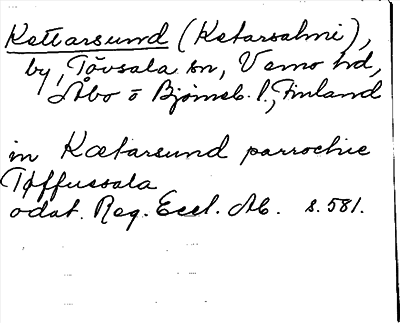 Kettarsund (Ketarsalmi),
by, Tövsala sn, Vemo hd,
Åbo o Björneb. l., Finland
in Kætarsund parrochie
Tøffussala
odat. Reg. Eccl. Ab. s. 581.